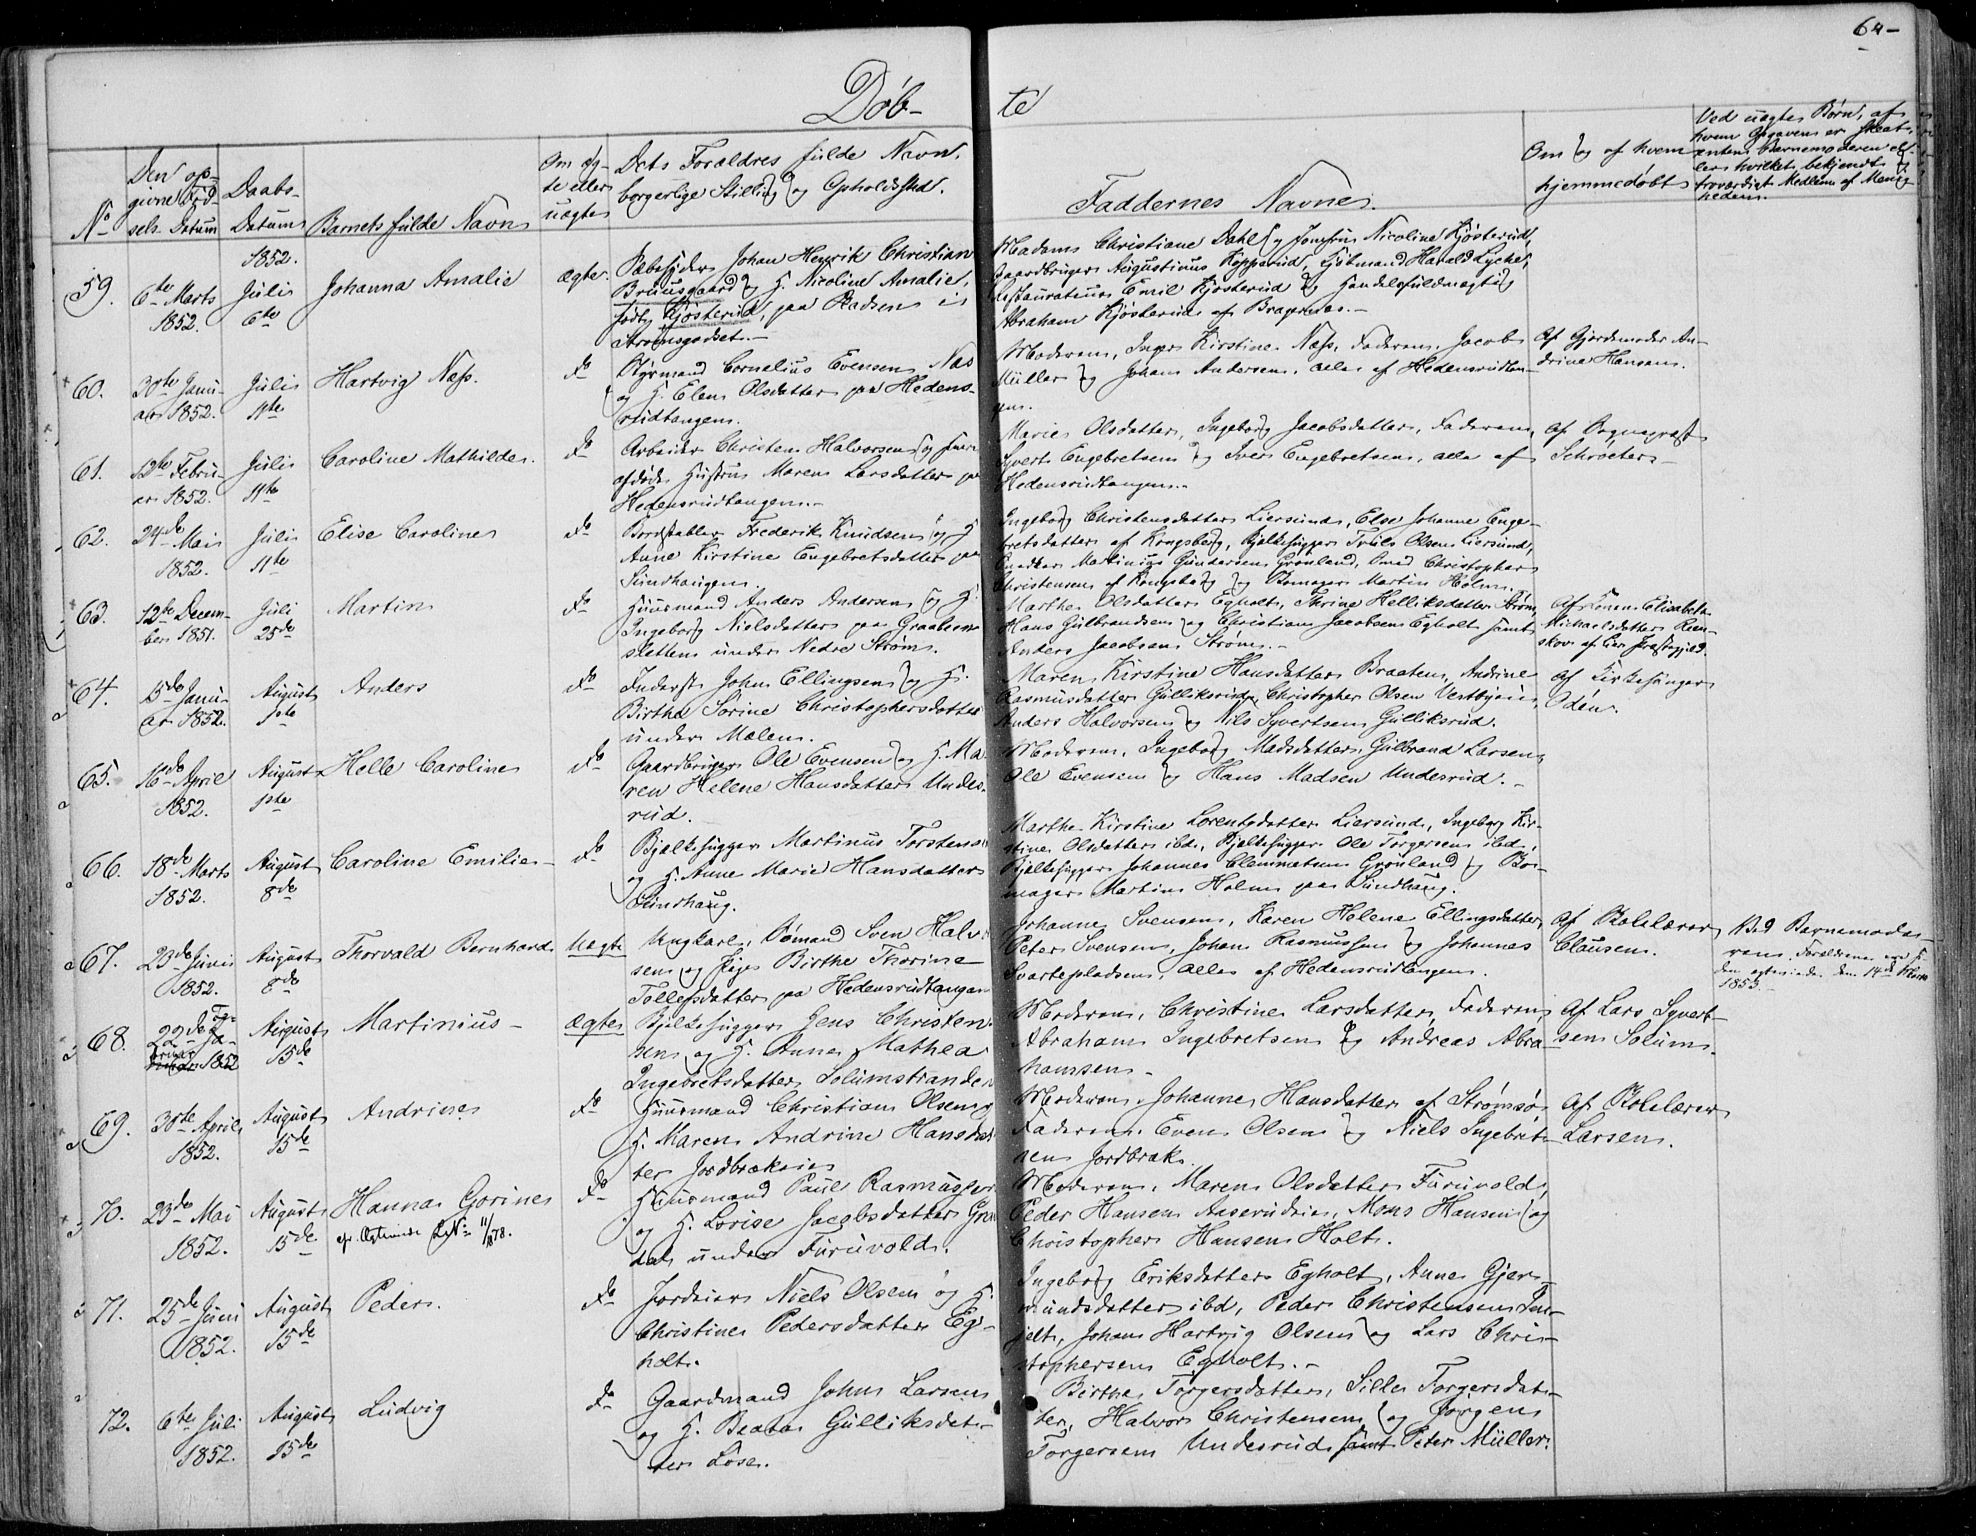 64-
Döb-
te
No
Den op-
givne Fød-
sels Datum
Daabs-
Datum
Barnets fulde Navn
Om æg-
te eller
uægte
Dets Forældres fulde Navn,
borgerlige Stilling og Opholdssted.
Faddernes Navne.
Om og af hvem
hjemmedøbt
Ved uægte Børn, af
hvem Opgaven er skeet,
enten Barnemoderen el-
ler hvilket bekjendt og
troværdigt Medlem af Menig-
heden.
1852.
59.
6te Marts
1852.
Juli
6te
Johanna Amalie
ægte.
Sæbesyder Johan Henrik Christian
Bruusgaard og H. Nicoline Amalie,
født Kjøsterud, paa Pladsen i
Strømsgodset.-
Madame Christiane Dahl og Jomfru Nicoline Kjøsterud,
Gaardbruger Augustinus Kopperud, Harald Lyche,
Restaurateur Emil Kjøsterud og Handelsfuldmægtig
Abraham Kjøsterud af Bragernes.-
60.
30te Janu-
ar 1852.
Juli
11te
Hartvig Næss.
do
Styrmand Cornelius Evensen Næs
og H. Elen Olsdatter paa Hedens-
rudtangen.
Moderen, Inger Kirstine Næss, Faderen, Jacob
Müller og Johan Andersen, alle af Hedensrudtan-
gen.
Af Gjordemoder An-
drine Hansen.
61.
12te Febru-
ar 1852.
Juli
11te
Caroline Mathilde.
do
Arbeider Christen Halvorsen og
afdøde Hustru Maren Larsdatter paa
Hedensrudtangen.-
Marie Olsdatter, Ingeborg Jacobsdatter, Faderen,
Syvert Engebretsen og Iver Engebretsen, alle af
Hedensrudtangen.-
Af Sognepræst
Schrøeter.-
62.
24de Mai
1852.
Juli
11te
Elise Caroline
do
Bordstabler Frederik Knudsen og H.
Anne Kirstine Engebretsdatter paa
Sundhaugen.
Ingeborg Christensdatter Liersund, Else Johanne Enge-
bretsdatter af Kongsberg, Bjelkehugger Truls Olsen Liersund,
Snedker Martinius Gundersen Grønland, Smed Christopher
Christensen af Kongsberg og Skomager Martin Holm.
63.
12te Decem-
ber 1851.
Juli
25de
Martin
do
Huusmand Anders Andersen og H.
Ingeborg Nielsdatter paa Graabein-
sletten under Nedre Strøm.
Marthe Olsdatter Egholt, Thrine Helliksdatter Strøm,
Hans Gulbrandsen og Christian Jacobsen Egholt samt
Anders Jacobsen Strøm.-
Af Konen Elisabeth
Michaelsdatter
skov af Lier Præstegjeld.
64.
15de Janu-
ar 1852.
August
1ste
Anders
do
Inderst John Ellingsen og H.
Birthe Sorine Christophersdatter
under Mælen.
Maren Kirstine Hansdatter Braaten, Andrine
Rasmusdatter Gulliksrud, Christopher Olsen Vestbyeie,
Anders Halvorsen og Nils Syvertsen Gulliksrud.
Af Kirkesanger
Odén.
65.
16de April
1852.
August
1ste
Helle Caroline
do
Gaardbruger Ole Evensen og H. Ma-
ren Helene Hansdatter Undes-
rud.
Moderen, Ingeborg Madsdatter, Gulbrand Larsen,
Ole Evensen og Hans Madsen Undesrud.-
66.
18de Marts
1852.
August
8de
Caroline Emilie-
do
Bjelkehugger Martinus Torstensen
og H. Anne Marie Hansdatter
Sundhaug.
Marthe Kirstine Lorentzdatter Liersund, Ingeborg Kir-
stine Olsdatter ibd., Bjelkehugger Ole Torgersen ibd.,
Bjelkehugger Johannes Clemmetsen Grønland og Sko-
mager Martin Holm paa Sundhaug.
67.
23de Juni
1852.
August
8de
Thorvald Bernhard
Uægte
Ungkarl, Sømand Sven Halv-
sen og Pige Birthe Thorine
Tollefsdatter paa Hedensrudtangen
Johanne Svensen, Karen Helene Ellingsdatter,
Peter Svensen, Johan Rasmussen og Johannes
Svartepladsen, alle af Hedensrudtangen.
Af Skolelærer
Clausen.
Ved Barnemode-
ren. Forældrene ere
den ægteviede den 14de Marts
1853.-
68.
22de Fe-
bruar 1852
August
15de
Martinius-
Ægte
Bjelkehugger Jens Christen-
sen og H. Anne Mathea
Ingebretsdatter Solumstranden
Moderen, Christine Larsdatter, Faderen,
Abraham Ingebretsen og Andreas Abra-
hamsen-
Af Lars Syvert-
sen Solum.
69.
30te April
1852.
August
15de
Andrine
do
Huusmand Christian Olsen og
H. Maren Andrine Hansdat-
ter Jordbrækeie
Moderen, Johanne Hansdatter af Strømsø,
Faderen, Even Olsen og Niels Ingebret-
sen Jordbræk.
Af Skolelærer
Larsen.
70.
23de Mai
1852.
August
15de
Hanna Gorine
do
Huusmand Paul Rasmussen
og H. Lovise Jacobsdatter Grøn-
dal under Furuvold.
Moderen, Maren Olsdatter Furuvold,
Peder Hansen Aaserudeie, Mons Hansen og
Christopher Hansen Holt.
71.
25de Juni
1852.
August
15de
Peder.
do
Jordeier Niels Olsen og H.
Christine Pedersdatter Eg-
holt.
Ingeborg Eriksdatter Egholt, Anne Gjer-
mundsdatter ibd, Peder Christensen
Johan Hartvig Olsen og Lars Chri-
stophersen Egholt.-
72.
6te Juli
1852.
August
15de
Ludvig
do
Gaardmand John Larsen
og H. Beata Gulliksdat-
ter Løse.
Birthe Torgersdatter, Sille Torgersdat-
ter, Halvor Christensen og Jørgen
Torgersen Undesrud samt Peter Müller.